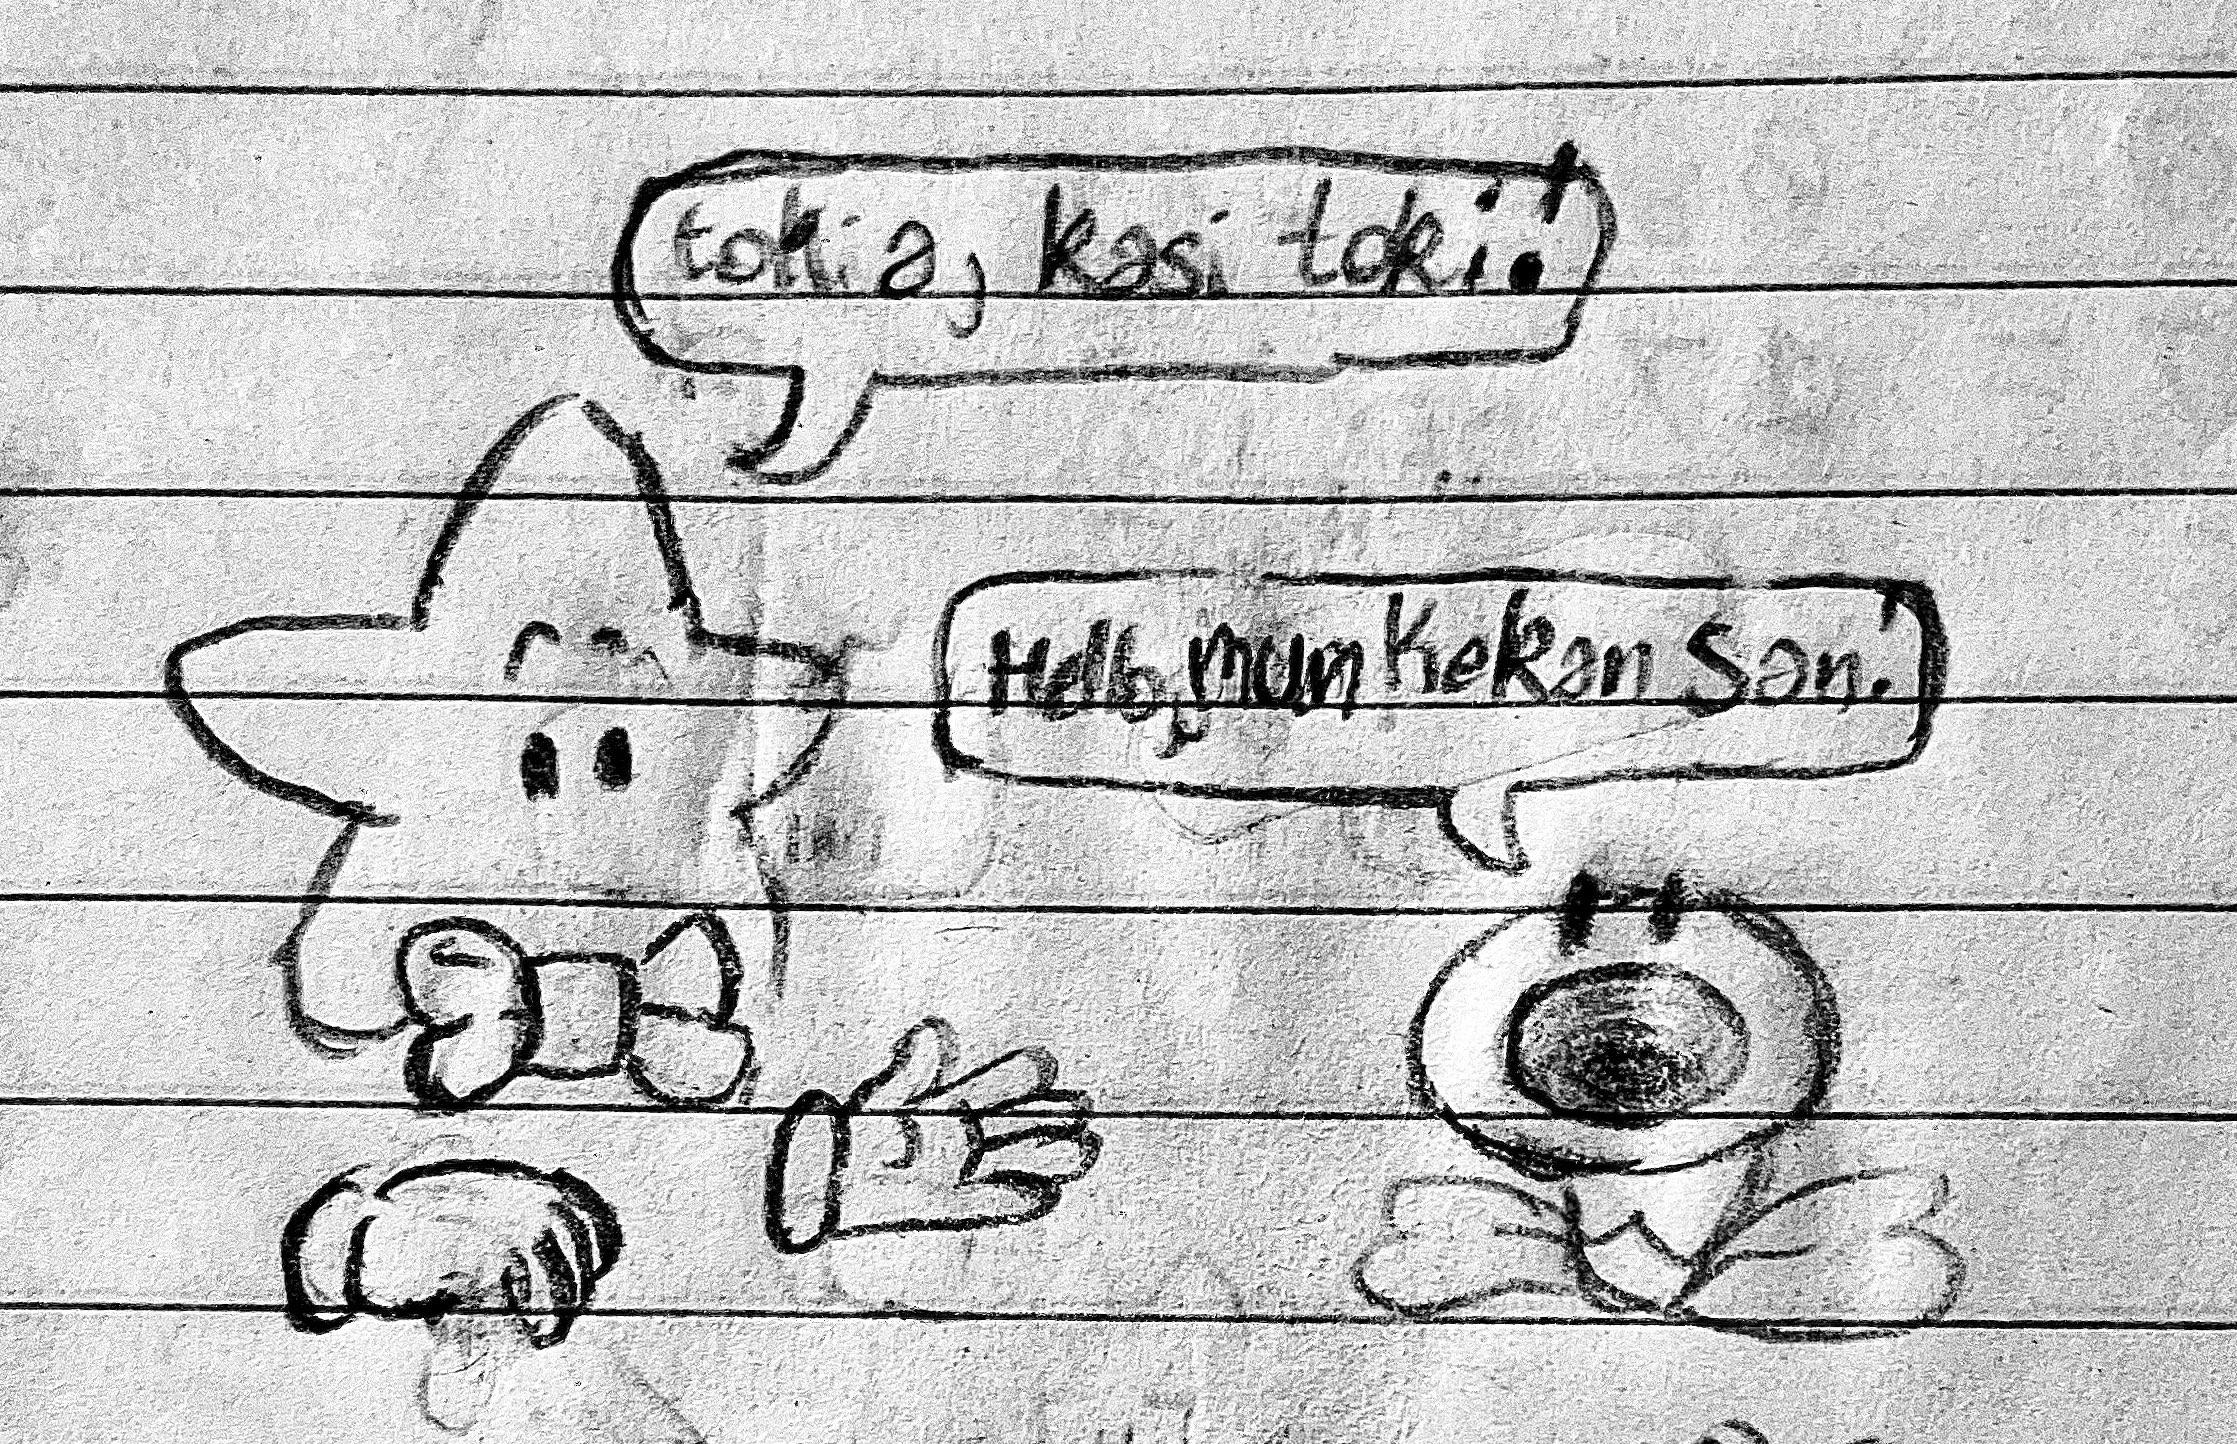 toki a, kasi toki!
Hello, mun Kekan San!